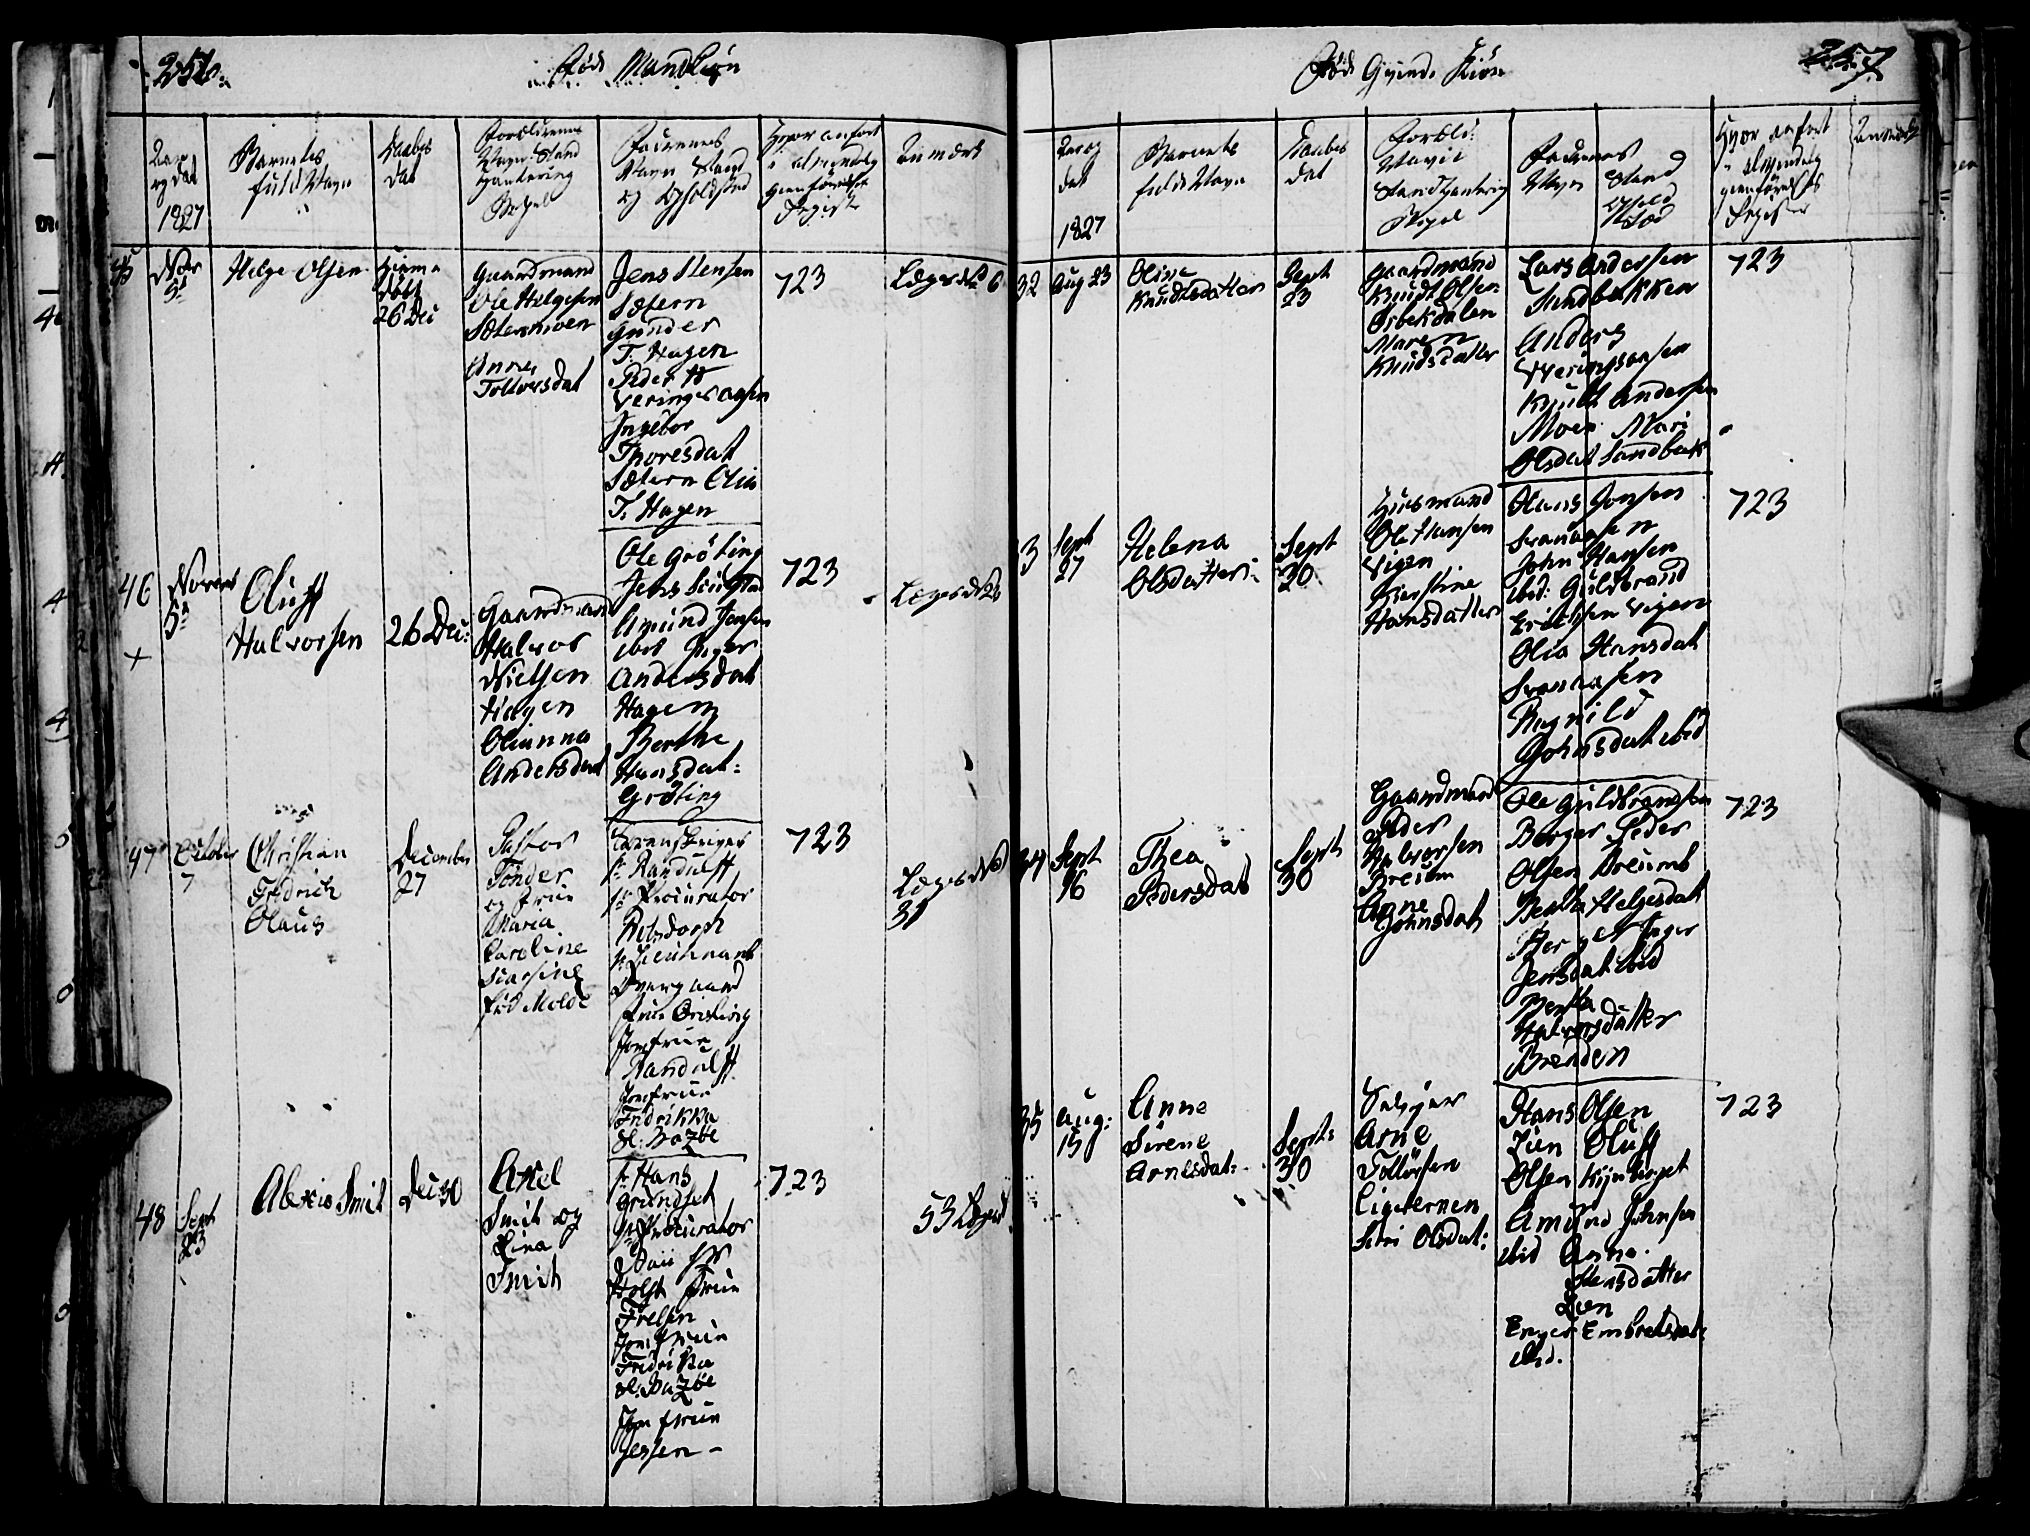 256.
Født Mandkiøn
Aar
og Dat
1827
Barnets
fulde Navn
Daabs
Dat
Forældrenes
Navn Stand
Hantering
Bopæl
Faddernes
Navn Stand
og Opholdsted
Hvor anført
i almindelig
Jevnførelses
Register
Anmærk
45
Nov
5t
Helge Olsen
Hiem
døbt
26 Dec
Gaardmand
Ole Helgesen
Sætermoen
Anne
Tollevsdat
Jens Stensen
Sætern
Gunder
T. Hagen
Peder H
Veringsaasen
Ingebor
Thoresdat
Sætern Olia
T. Hagen
723
Lægsd No 6
46
+
Novem
5t
Oluff
Halvorsen
26 Dec:
Gaardmand
Halvor
Nielsen
Hagen
Olianna
Andersdat
Ole Grøting
Jens
Amund Jonsen
ibid Inger
Andersdat
Hagen
Berthe
Hansdat:
Grøting
723
Lægsd No
47
October
7
Christian
Fredrich
Olaus
December
27
Pastor
Tønder
og Frue
Maria
Caroline
født Molde
Sorenskriver
Hr Randulff
Hr Procurator
Rolsdorph
Hr Lieutnant
Overgaard
Frue
Jomfrue
Randulff
Jomfrue
Fredrikka
d. Bazøe
723
Lægsd No
31
48
Sept
23
Alexis Smit
Dec 30
Axel
Smit og
Lina
Smith
Hr Hans
Grundset
Hr Procurator
Holst Frue
Jomfrue
Fredrikka
d. Bazøe
Jomfrue
Jessen -
723
53 Lægsd
257
Født Qvinde Kiøn
Aar og
Dat
1827
Barnets
fulde Navn
Daabs
Dat
Foreld:
Navn
Stand Hantering
Bopæl
Faddernes
Navn Stand
Opholds
Sted
Hvor anført
i almindelig
Jevnførelses
Register
Anmærk
32
Aug 23
Oline
Knudtsdatter
Sept
23
Gaardmand
Knudt Olsen
Orbekdalen
Maren
Knudsdatter
Lars Andersen
Sandbakken
Anders
Veringsaasen
Knudt Andersen
Moen Mari
Olsdat Sandbak
723
3
Sept
27
Helena
Olsdatter
Sept
30
Husmand
Ole Hansen
Vigen
Kierstine
Hansdatter
Hans Jonsen
Svenaasen
John Hansen
ibid: Guldbrand
Erichsen Vigen
Olia Hansdat
Svenaasen
Ragnild
Johnsdat ibid
723
34
Sept
16
Thea
Pedersdat
Sept
30
Gaardmand
Peder
Halvorsen
Breum
Anne
Johnsdat
Ole Guldbrandsen
Berger Peder
Olsen Breumb
Bertha Helgesdat
Berger Inger
Jensdat ibid
Bertha
Halvorsdatter
Brenden
723
35
Aug:
15
Anne
Sirene
Arnesdat:
Sept:
30
Selvjer
Arne
Tollefsen
Ligeternen
Siri Olsdat:
Hans Olsen
Lien Oluff
Olsen Kynberget
Amund Johnsen
ibid Anne
Stensdatter
Lien
Enger Embretsdat:
ibid.
723